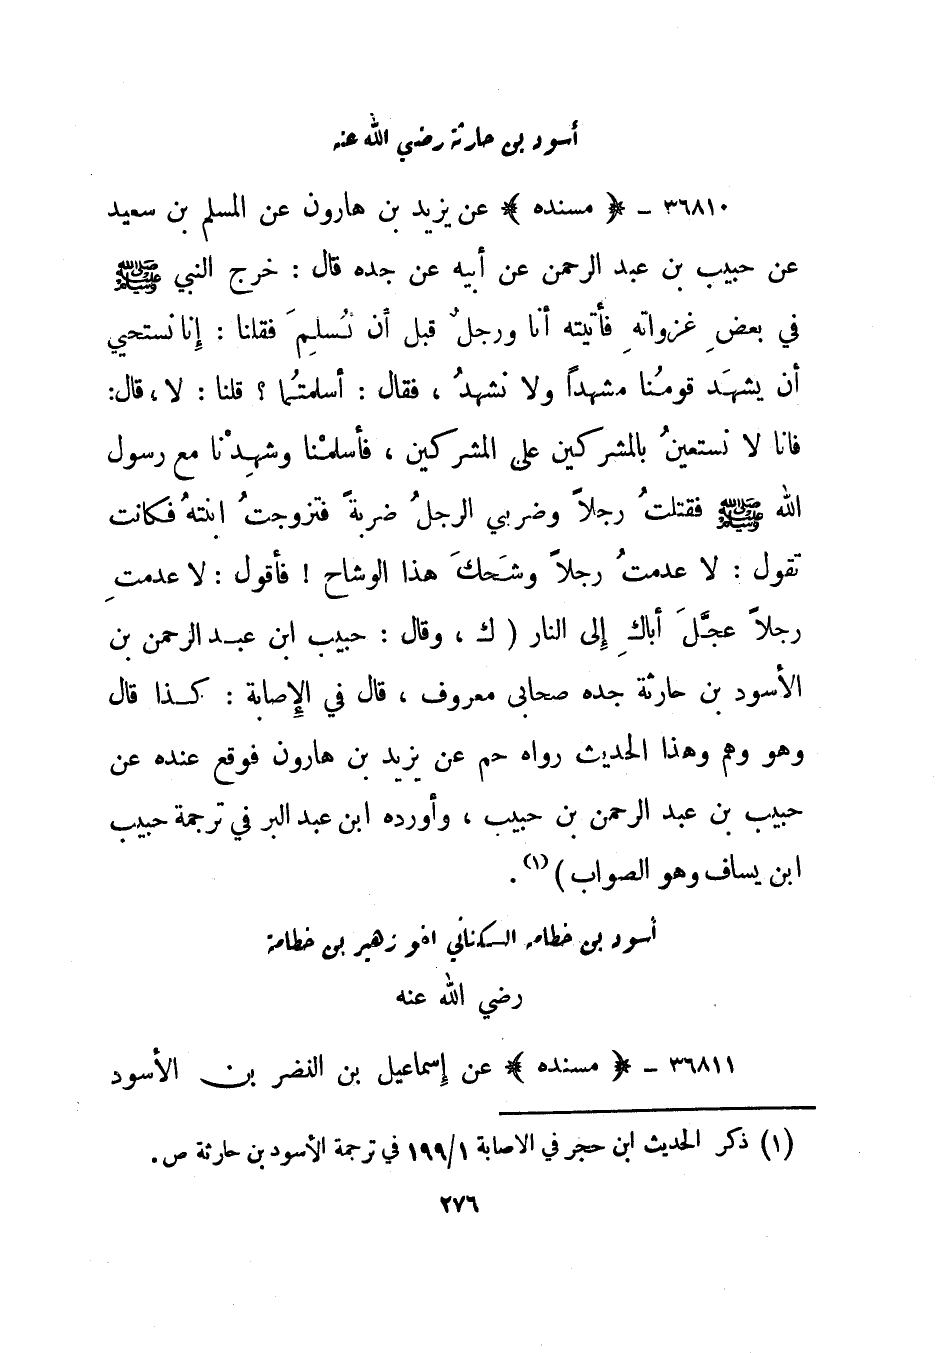 أسود بن حارثة رضي الله عنه
٣٦٨١٠ - ﴿ مسنده ﴾ عن يزيد بن هارون عن المسلم بن سعيد
عن حبيب بن عبد الرحمن عن أبيه عن جده قال : خرج النبي ﷺ
في بعضِ غزواتهِ فأتيته أنا ورجلٌ قبل أن نُسلِمَ فقلنا : إِنا نستحيي
أن يشهَد قومُنا مشهداً ولا نشهدُ ، فقال : أسلمتُما ؟ قلنا : لا ، قال:
فانا لا نستعينُ بالمشركين على المشركين ، فأسلمْنا وشهِدْنا مع رسول
الله ﷺ فقتلتُ رجلاً وضربي الرجلُ ضربةً فتزوجتُ ابنتهُ فكانت
تقول : لا عدمتُ رجلاً وشَحكَ هذا الوشاح ! فأقول : لا عدمتِ
رجلاً عجَّلَ أباكِ إِلى النار ( ك ، وقال : حبيب ابن عبد الرحمن بن
الأسود بن حارثة جده صحابى معروف ، قال في الإِصابة : كذا قال
وهو وهم وهذا الحديث رواه حم عن يزيد بن هارون فوقع عنده عن
حبيب بن عبد الرحمن بن حبيب ، وأورده ابن عبد البر في ترجمة حبيب
ابن يساف وهو الصواب ) (١) .
أسود بن خطامه الكناني اخو زهير بن خطامة
رضي الله عنه
٣٦٨١١ - ﴿ مسنده ﴾ عن إِسماعيل بن النضر بن الأسود
(١) ذكر الحديث ابن حجر في الاصابة ١٩٩/١ في ترجمة الأسود بن حارثة ص .
٢٧٦